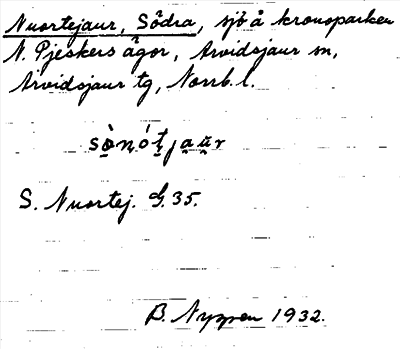 Nuortejaur, Södra, sjö å kronoparken
N. Pjeskers ägor, Arvidsjaur sn,
Arvidsjaur tg, Norrb. l.
sò̤nó̤t̤ja̤ṳ̆r
S. Nuortej. G. 35.
B. Nyppen 1932.